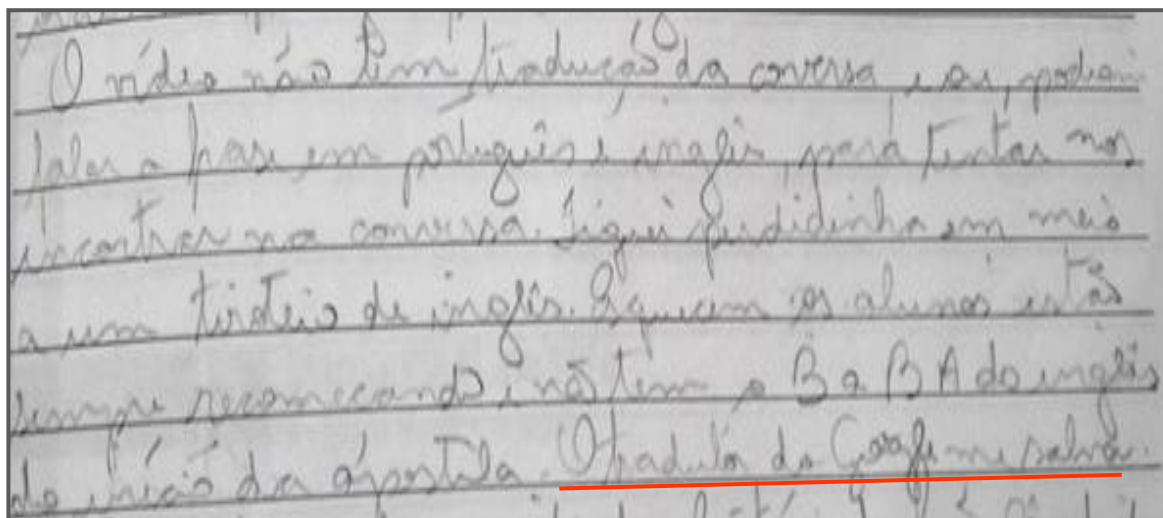 O vídeo não tem tradução da conversa e ou, podiam
falar a frase em português e inglês, para tentar nos
encontrar na conversa. Fiquei perdidinha em meio
a um tiroteio de inglês. Esquecem os alunos estão
sempre recomeçando e não tem o B a BA do inglês
do início da apostila. O tradutor do Google me salva.